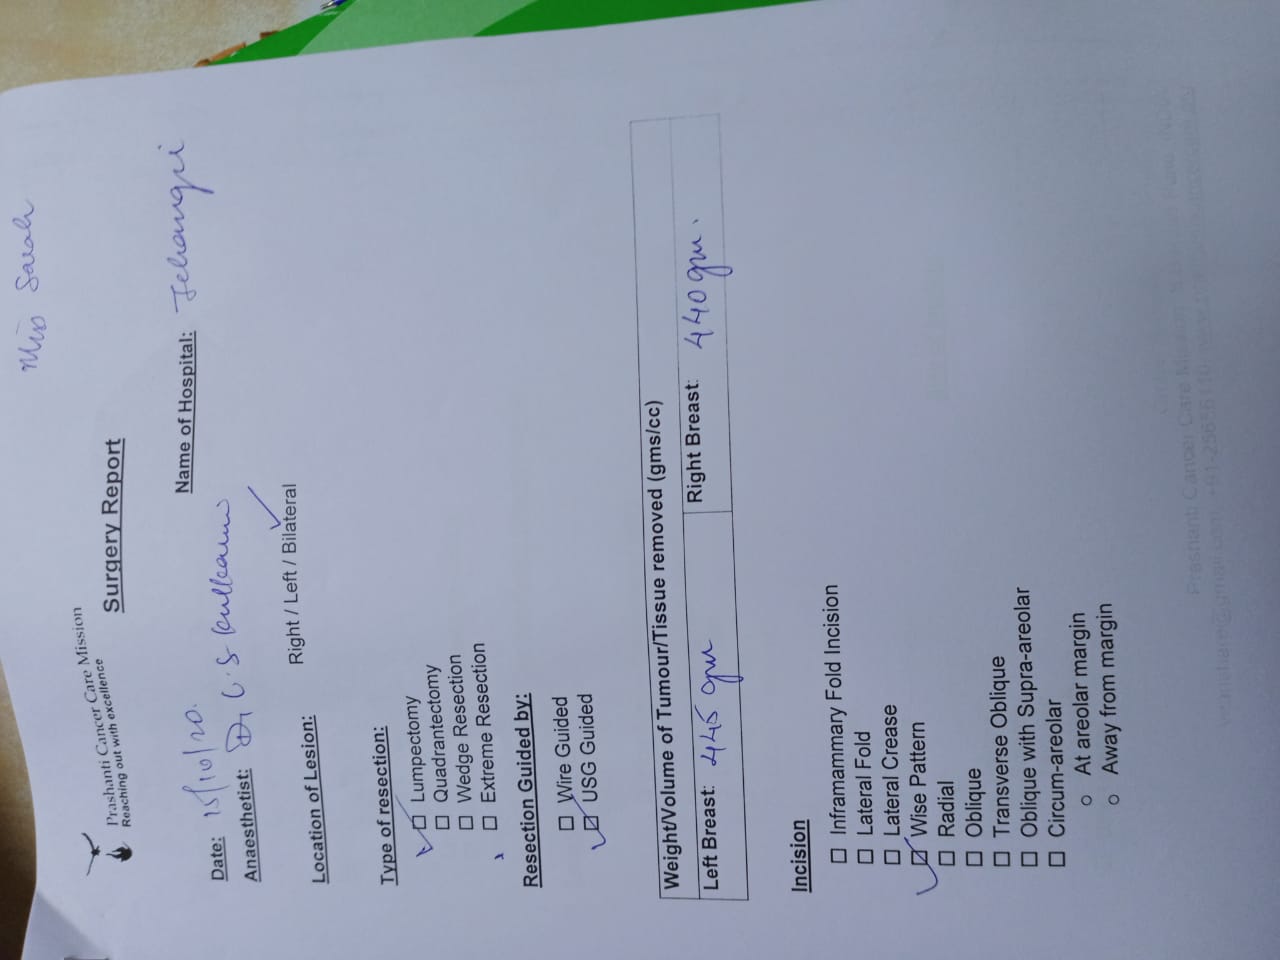 Miss Sarah
Prashanti Cancer Care Mission
Reaching out with excellence
Surgery Report
Date: 15/10/20. Name of Hospital: Jehangir
Anaesthetist: Dr C.S kulkarni
Location of Lesion: Right / Left / Bilateral
Type of resection:
Lumpectomy
Quadrantectomy
Wedge Resection
Extreme Resection
Resection Guided by:
Wire Guided
USG Guided
Weight/Volume of Tumour/Tissue removed (gms/cc)
Left Breast: 445 gm Right Breast: 440 gm.
Incision
Inframammary Fold Incision
Lateral Fold
Lateral Crease
Wise Pattern
Radial
Oblique
Transverse Oblique
Oblique with Supra-areolar
Circum-areolar
At areolar margin
Away from margin